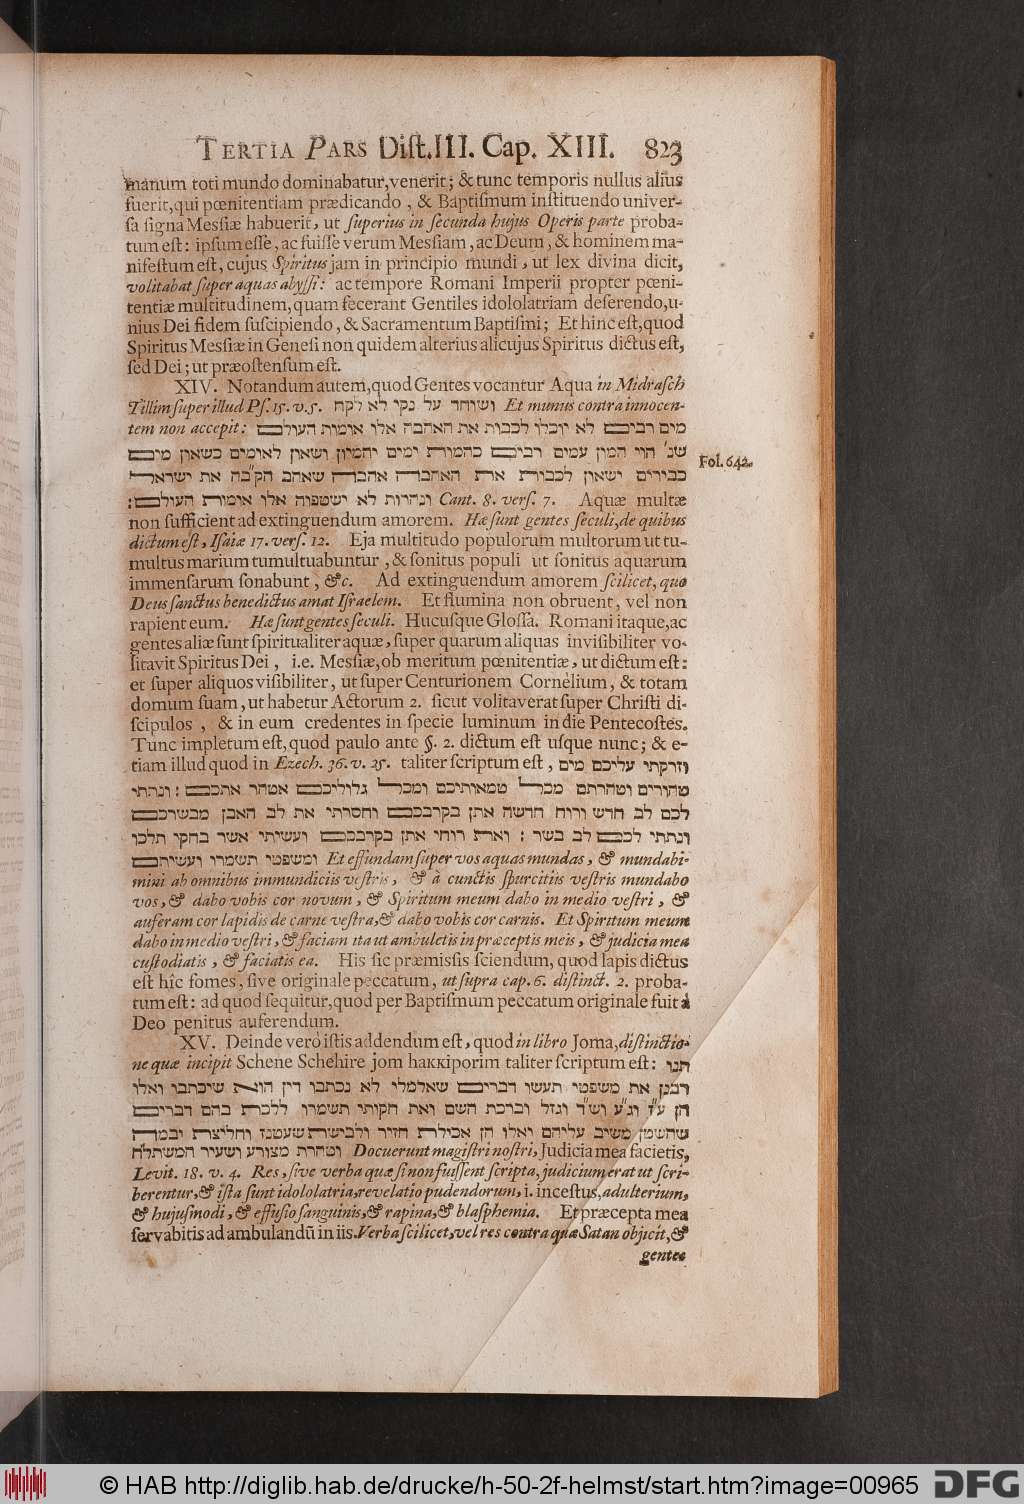 TERTIA PARS Dist.III. Cap. XIII. 823
manum toti mundo dominabatur, venerit; & tunc temporis nullus alius
fuerit, qui pœnitentiam prædicando, & Baptismum instituendo univer-
sa signa Messiæ habuerit, ut superius in secunda hujus Operis parte proba-
tum est: ipsum esse, ac fuisse verum Messiam, ac Deum, & hominem ma-
nifestum est, cujus Spiritus jam in principio mundi, ut lex divina dicit,
volitabat super aquas abyssi: ac tempore Romani Imperii propter pœni-
tentiæ multitudinem, quam fecerant Gentiles idololatriam deserendo, u-
nius Dei fidem suscipiendo, & Sacramentum Baptismi; Et hinc est, quod
Spiritus Messiæ in Genesi non quidem alterius alicujus Spiritus dictus est,
sed Dei; ut præostensum est.
XIV. Notandum autem, quod Gentes vocantur Aqua in Midrasch
Tillim super illud Ps. 15. v. 5. ושוחר על נקי לא לקח Et munus contra innocen-
tem non accepit: מים רבים לא יוכלו לכבות את האהבה אלו אומות העולם
שנ' הוי המון עמים רבים כהמות ימים יהמיון ושאון לאומים כשאון מים
Fol. 642.
כבירים ישאון לכבות את האהבה אהבה שאהב הק"בה את ישראל
ונהרות לא ישטפוה אלו אומות העולם: Cant. 8. vers. 7. Aquæ multæ
non sufficient ad extinguendum amorem. Hæ sunt gentes seculi, de quibus
dictum est, Isaiæ 17. vers. 12. Eja multitudo populorum multorum ut tu-
multus marium tumultuabuntur, & sonitus populi ut sonitus aquarum
immensarum sonabunt, &c. Ad extinguendum amorem scilicet, quo
Deus sanctus benedictus amat Israelem. Et flumina non obruent, vel non
rapient eum. Hæ sunt gentes seculi. Hucusque Glossa. Romani itaque, ac
gentes aliæ sunt spiritualiter aquæ, super quarum aliquas invisibiliter vo-
litavit Spiritus Dei, i.e. Messiæ, ob meritum pœnitentiæ, ut dictum est:
et super aliquos visibiliter, ut super Centurionem Cornelium, & totam
domum suam, ut habetur Actorum 2. sicut volitaverat super Christi di-
scipulos, & in eum credentes in specie luminum in die Pentecostes.
Tunc impletum est, quod paulo ante §. 2. dictum est usque nunc; & e-
tiam illud quod in Ezech. 36. v. 25. taliter scriptum est, וזרקתי עליכם מים
טהורים וטהרתם מכל טמאותיכם ומכל גלוליכם אטהר אתכם: ונתתי
לכם לב חדש ורוח חדשה אתן בקרבכם וחסרתי את לב האבן מבשרכם
ונתתי לכם לב בשר: ואת רוחי אתן בקרבכם ועשיתי אשר בחקי תלכו
ומשפטי תשמרו ועשיתם Et effundam super vos aquas mundas, & mundabi-
mini ab omnibus immundiciis vestris, & à cunctis spurcitiis vestris mundabo
vos, & dabo vobis cor novum, & Spiritum meum dabo in medio vestri, &
auferam cor lapidis de carne vestra, & dabo vobis cor carnis. Et Spiritum meum
dabo in medio vestri, & faciam ita ut ambuletis in præceptis meis, & judicia mea
custodiatis, & faciatis ea. His sic præmissis sciendum, quod lapis dictus
est hîc fomes, sive originale peccatum, ut supra cap. 6. distinct. 2. proba-
tum est: ad quod sequitur, quod per Baptismum peccatum originale fuit à
Deo penitus auferendum.
XV. Deinde verò istis addendum est, quod in libro Joma, distinctio-
ne quæ incipit Schene Schehire jom hakkiporim taliter scriptum est: תנו
רבנן את משפטי תעשו דברים שאלמלי לא נכתבו דין הוא שיכתבו ואלו
הן ע"ז וג"ע וש"ד וגזל וברכת השם ואת חקותי תשמרו ללכת בהם דברים
שהשטן משיב עליהם ואלו הן אכילת חזיר ולבישת שעטנז וחליצת יבמה
וטהרת מצורע ושעיר המשתלח Docuerunt magistri nostri, Judicia mea facietis,
Levit. 18. v. 4. Res, sive verba quæ si non fuissent scripta, judicium erat ut scri-
berentur, & ista sunt idololatria, revelatio pudendorum, i. incestus, adulterium,
& hujusmodi, & effusio sanguinis, & rapina, & blasphemia. Et præcepta mea
servabitis ad ambulandū in iis. Verba scilicet, vel res contra quæ Satan objicit, &
gentes
© HAB http://diglib.hab.de/drucke/h-50-2f-helmst/start.htm?image=00965 DFG